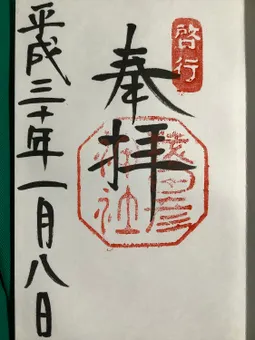 啓行
奉拝
猿田彦
神社
平成三十年一月八日